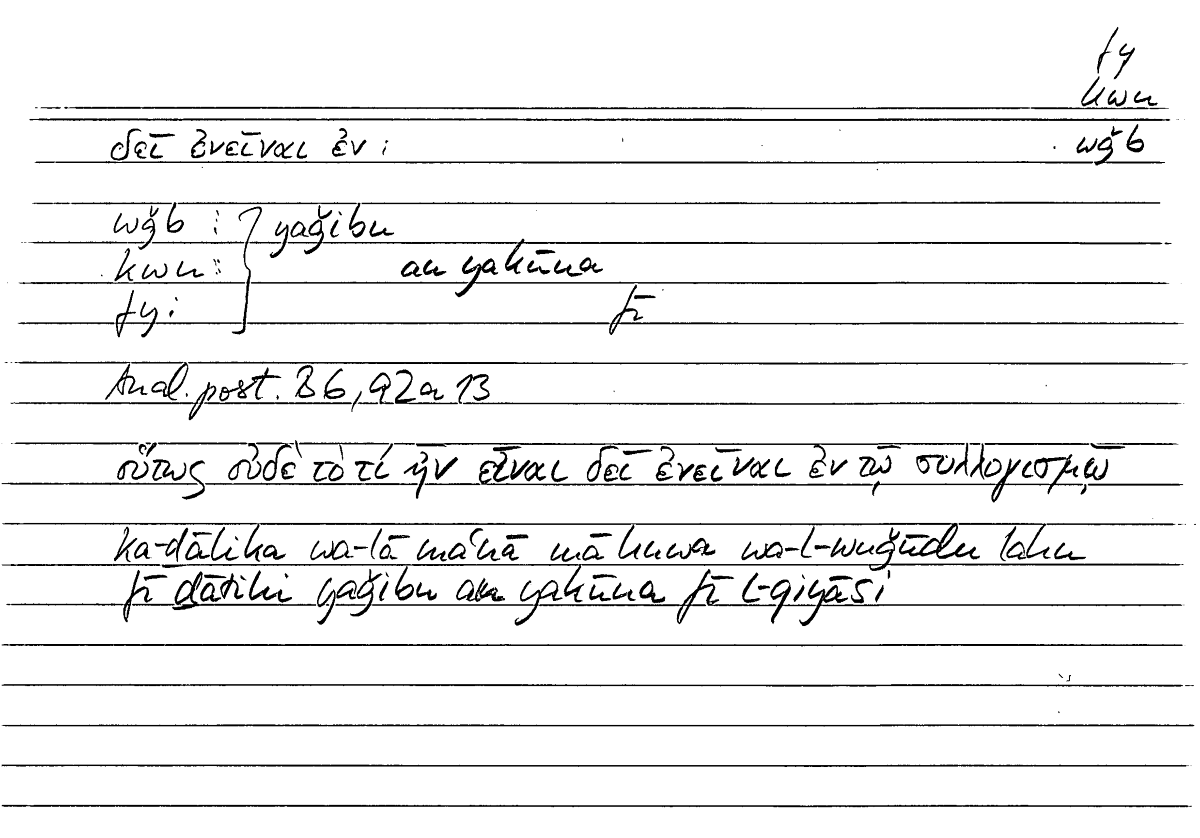 fy
kwn
δεῖ ἐνεῖναι ἐν : wǧb
wǧb : } yaǧibu
kwn : an yakūna
fy : fī
Anal. post. B6, 92a 13
οὕτως οὐδὲ τὸ τί ἦν εἶναι δεῖ ἐνεῖναι ἐν τῷ συλλογισμῷ
ka-ḏālika wa-lā maʿnā mā huwa wa-l-wuǧūdu lahu
fī ḏātihi yaǧibu an yakūna fī l-qiyāsi